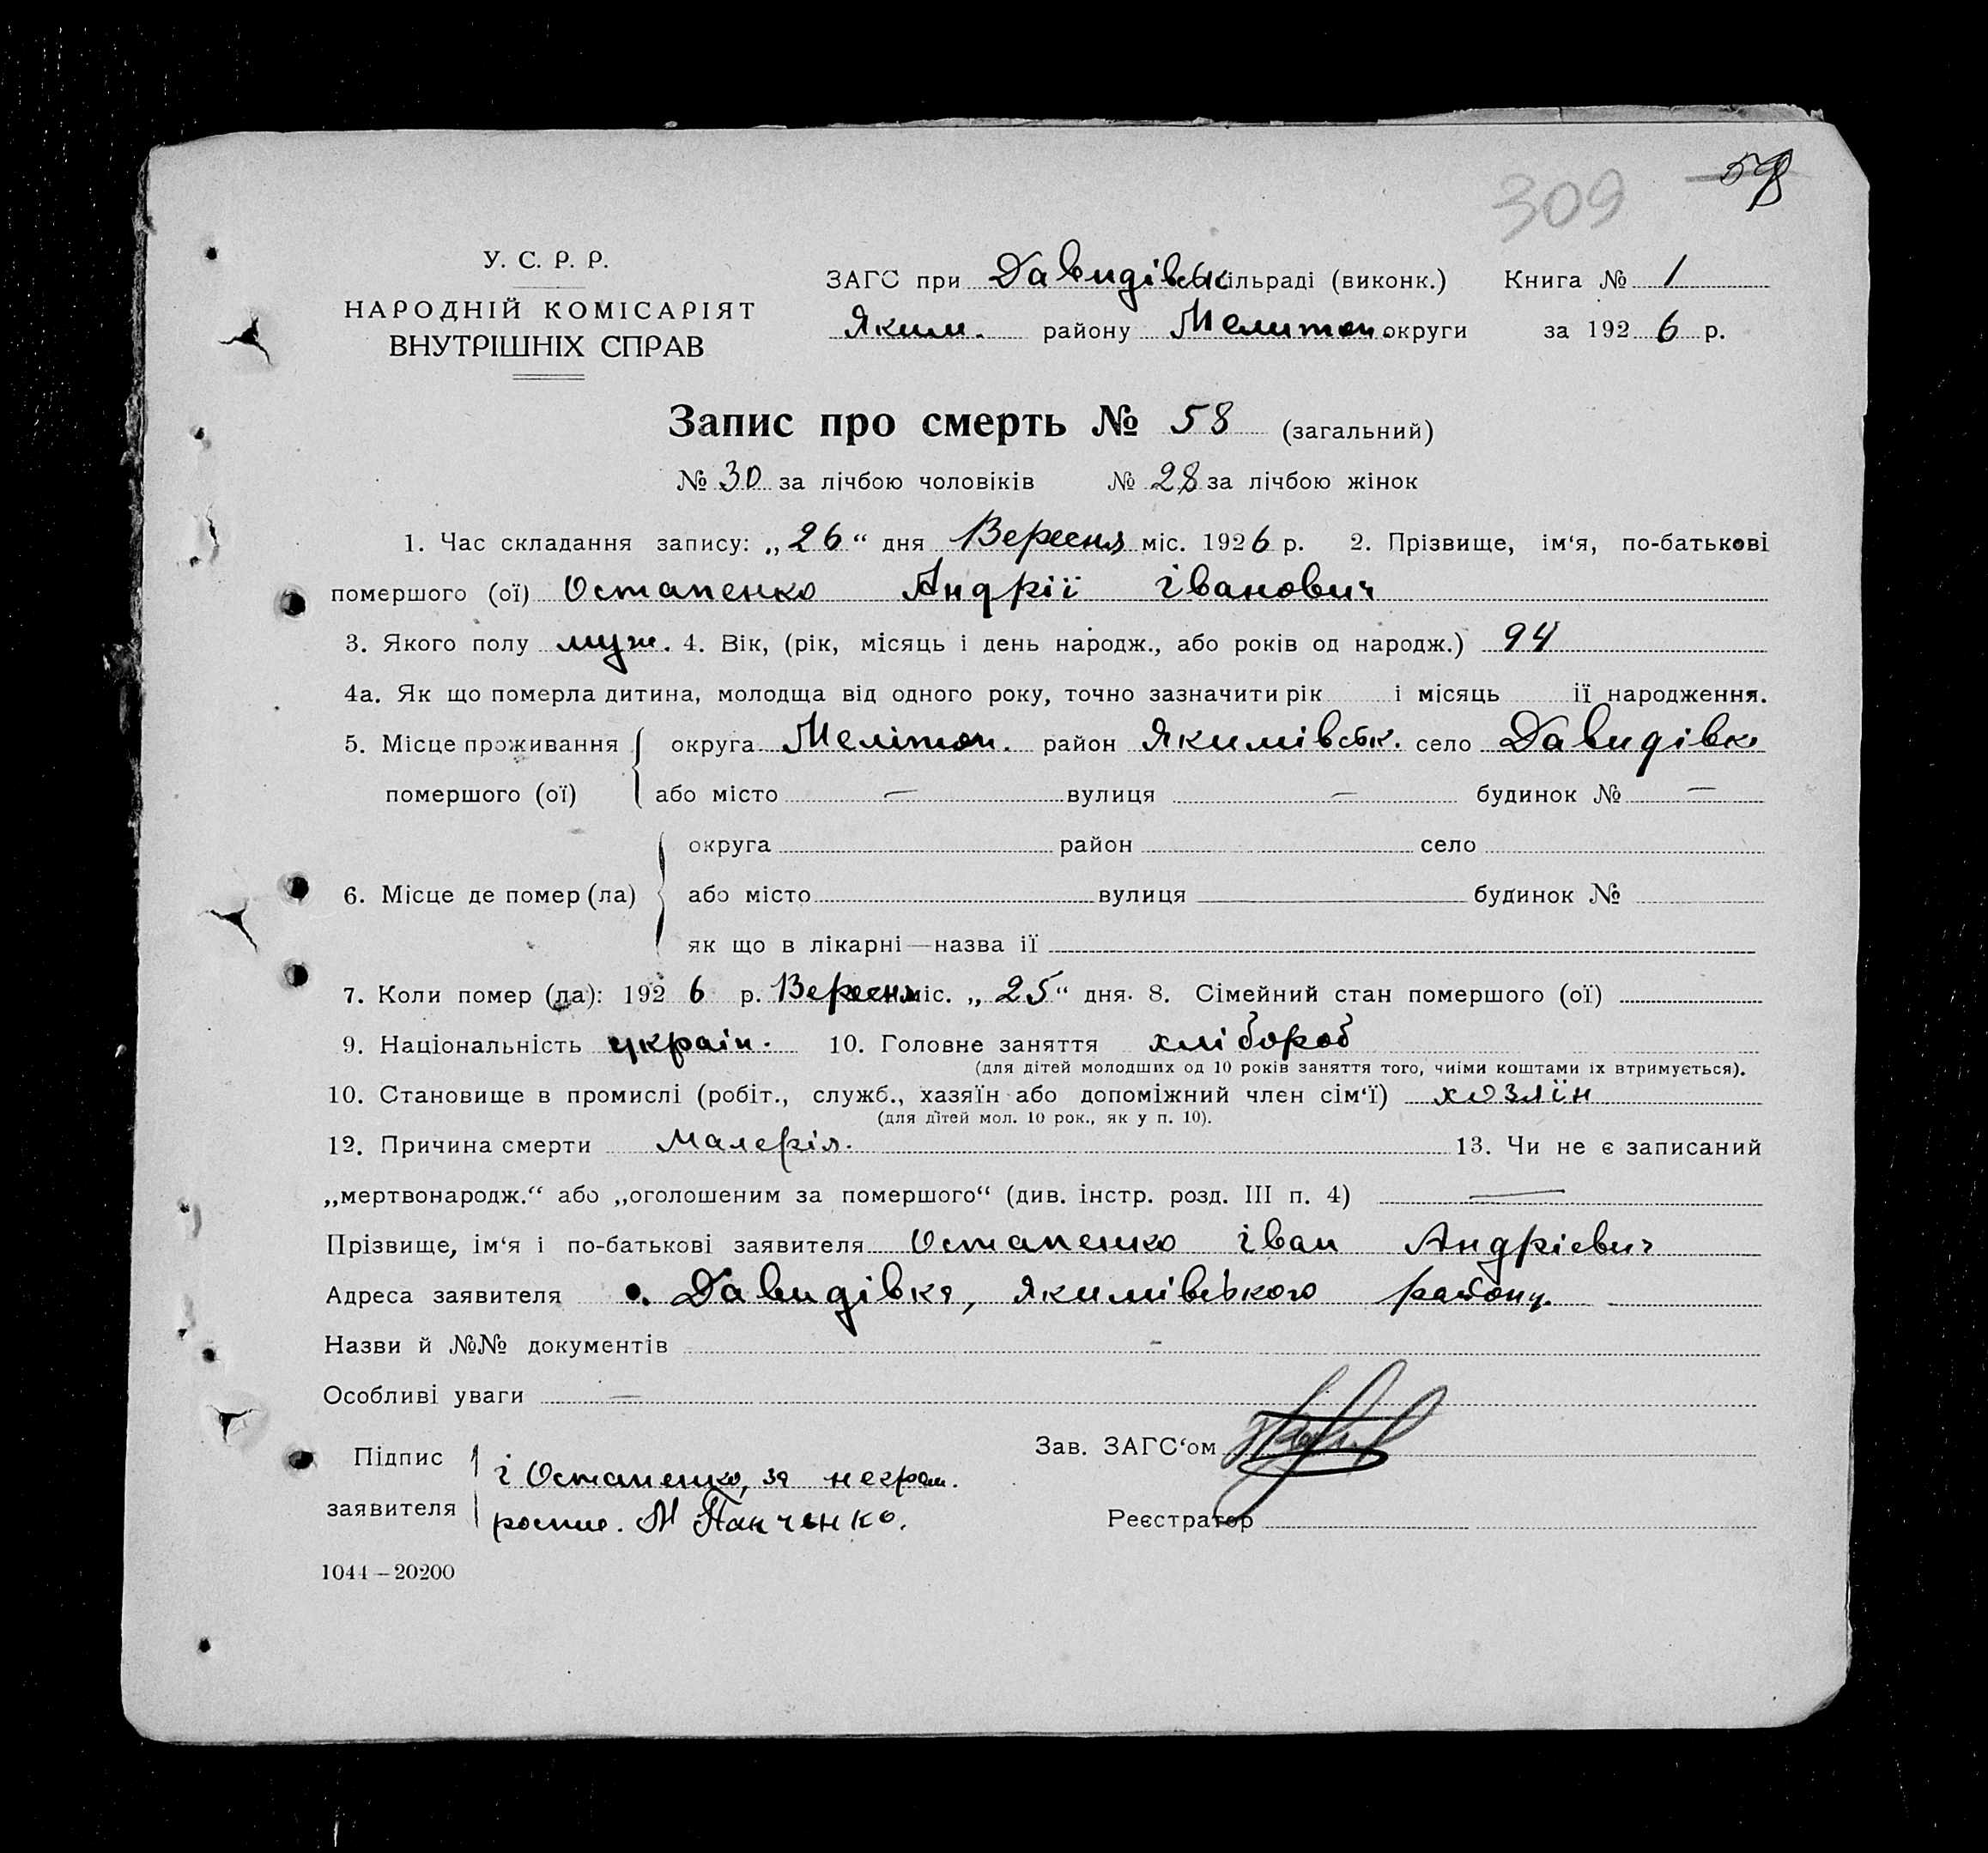 309 58
У. С. Р. Р.
НАРОДНІЙ КОМІСАРІЯТ
ВНУТРІШНІХ СПРАВ
ЗАГС при Давидівськ сільраді (виконк.) Книга № 1
Яким. району Мелитоп. округи за 1926 р.
Запис про смерть № 58 (загальний)
№ 30 за лічбою чоловіків № 28 за лічбою жінок
1. Час складання запису: „26“ дня Вересня міс. 1926 р. 2. Прізвище, ім‘я, по-батькові
помершого (ої) Остапенко Андрії Іванович
3. Якого полу муж. 4. Вік, (рік, місяць і день народж., або років од народж.) 94
4а. Як що померла дитина, молодща від одного року, точно зазначити рік і місяць ії народження.
5. Місце проживання округа Мелітоп. район Якимівськ. село Давидівка
помершого (ої) або місто — вулиця — будинок № —
округа район село
6. Місце де помер (ла) або місто вулиця будинок №
як що в лікарні—назва ії
7. Коли помер (ла): 1926 р. Вересня міс. „25“ дня. 8. Сімейний стан помершого (ої)
9. Національність україн. 10. Головне заняття хлібороб
(для дітей молодших од 10 років заняття того, чиіми коштами іх втримується).
10. Становище в промислі (робіт., служб., хазяїн або допоміжний член сім‘ї) хозяїн
(для дітей мол. 10 рок., як у п. 10).
12. Причина смерти Малерія. 13. Чи не є записаний
„мертвонародж.“ або „оголошеним за помершого“ (див. інстр. розд. III п. 4) —
Прізвище, ім‘я і по-батькові заявителя Остапенко Іван Андрієвич
Адреса заявителя с. Давидівка, Якимівського району.
Назви й №№ документів -
Особливі уваги —
Зав. ЗАГС‘ом
Підпис і Остапенко, за неграм.
заявителя роспис. М Панченко.
Реєстратор
1044—20200